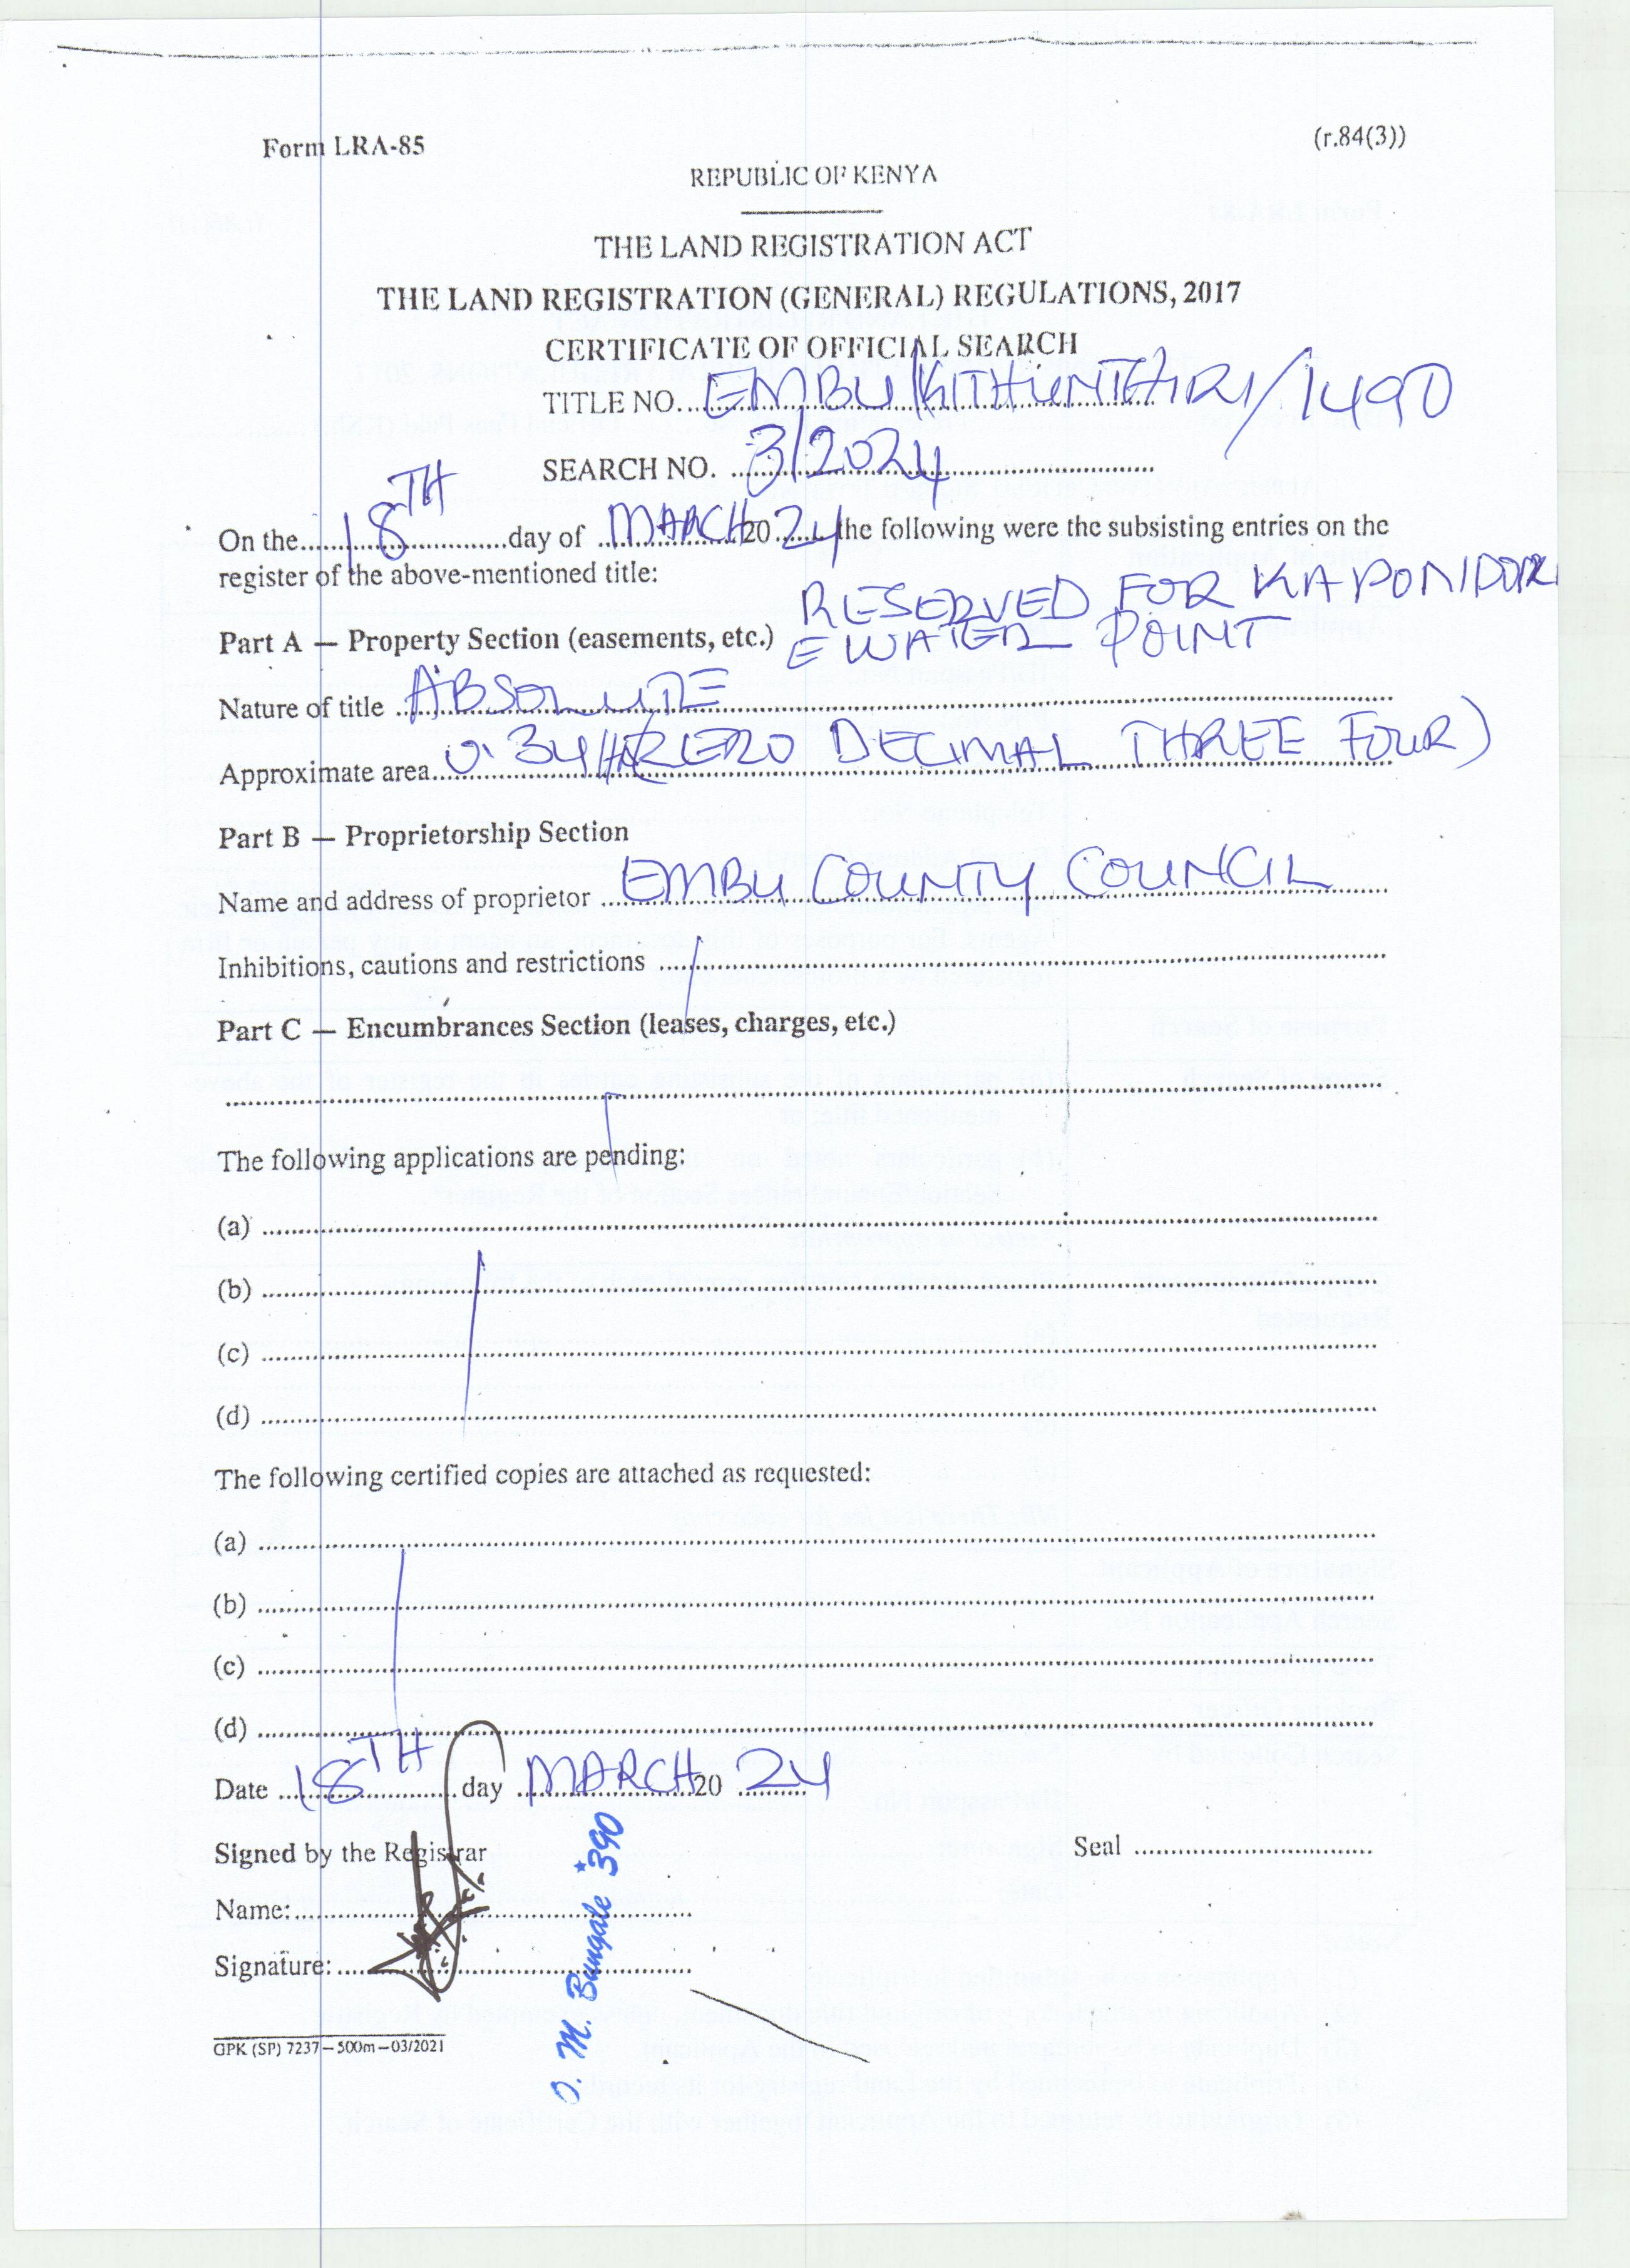 Form LRA-85
(r.84(3))
REPUBLIC OF KENYA
THE LAND REGISTRATION ACT
THE LAND REGISTRATION (GENERAL) REGULATIONS, 2017
CERTIFICATE OF OFFICIAL SEARCH
TITLE NO. EMBU/KITHUNTHIRI/1490
SEARCH NO. 3/2024
On the 18TH day of MARCH 2024 the following were the subsisting entries on the
register of the above-mentioned title:
RESERVED FOR
Part A — Property Section (easements, etc.) WATER POINT
Nature of title ABSOLUTE
Approximate area 0.34HA (ZERO DECIMAL THREE FOUR)
Part B — Proprietorship Section
Name and address of proprietor EMBU COUNTY COUNCIL
Inhibitions, cautions and restrictions
Part C — Encumbrances Section (leases, charges, etc.)
The following applications are pending:
(a)
(b)
(c)
(d)
The following certified copies are attached as requested:
(a)
(b)
(c)
(d)
Date 18TH day MARCH 2024
Signed by the Registrar
Seal
Name:
Signature:
O. M. Bungale *390
GPK (SP) 7237—500m—03/2021